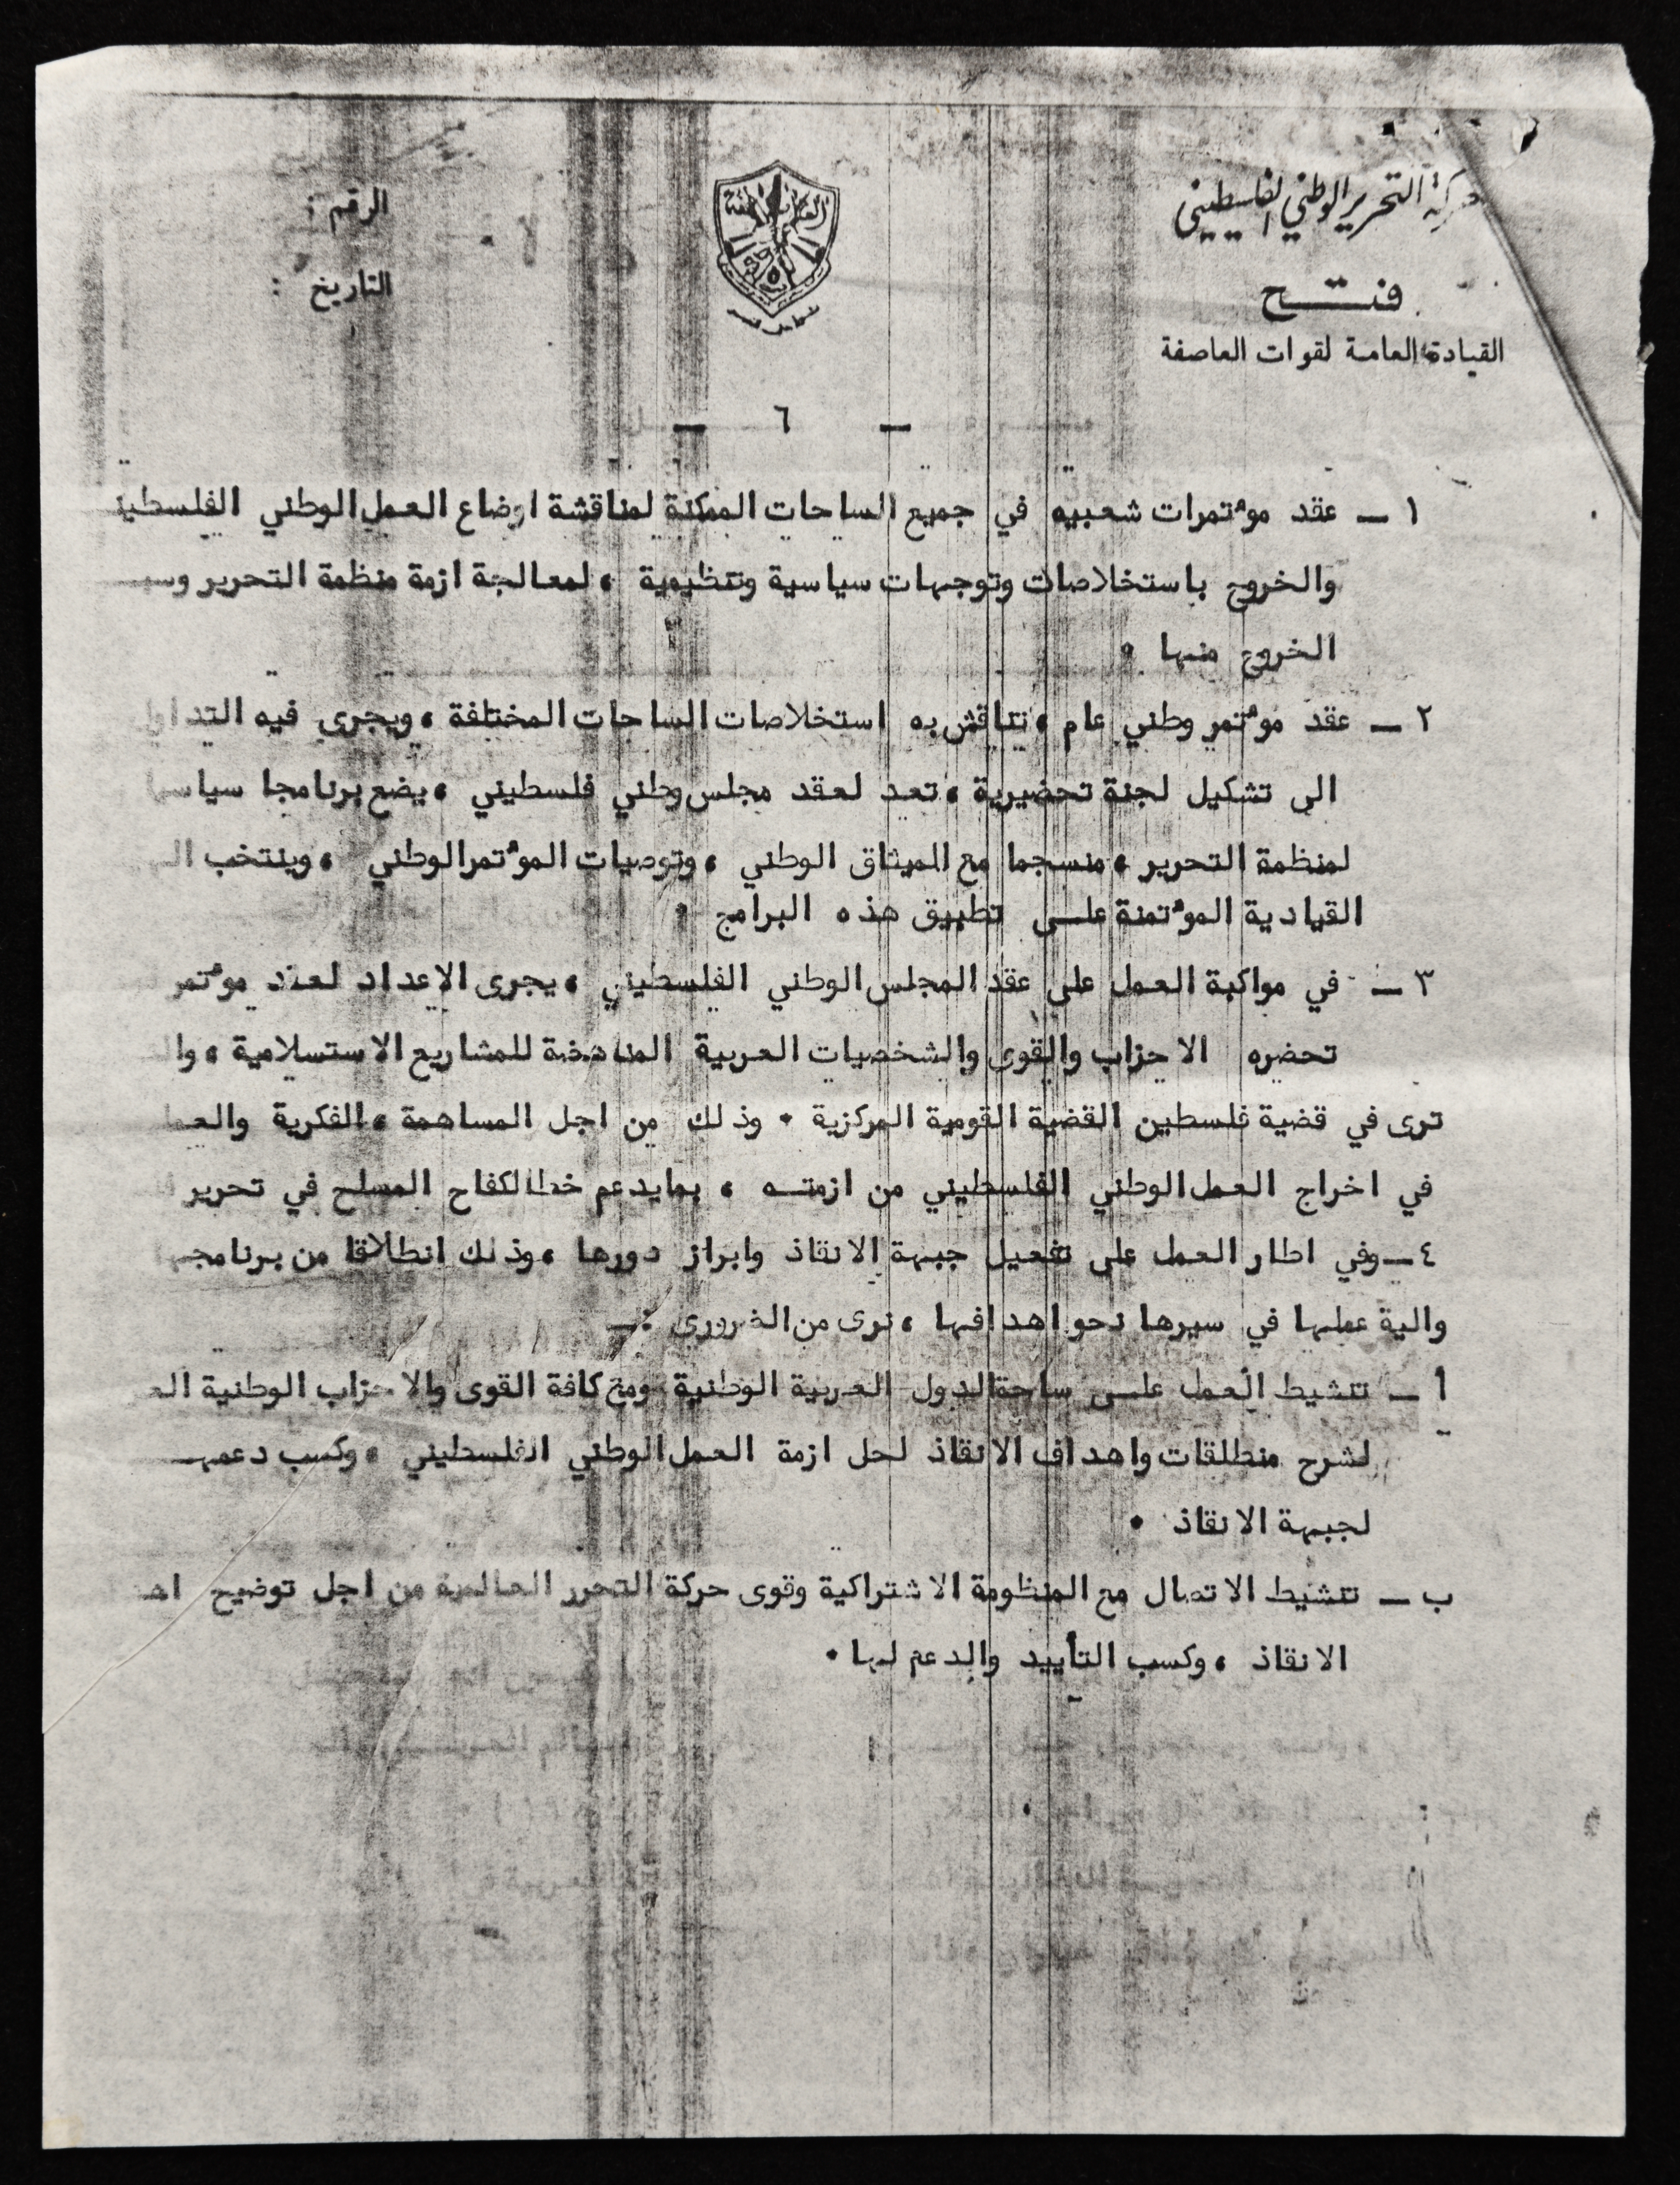 حركة التحرير الوطني الفلسطيني
فتح
القيادة العامة لقوات العاصفة
الرقم :
التاريخ :
العاصفة
— ٦ —
١ — عقد موٴتمرات شعبيه في جميع الساحات الممكنة لمناقشة اوضاع العمل الوطني
والخروج باستخلاصات وتوجهات سياسية وتنظيمية ، لمعالجة ازمة منظمة التحرير
الخروج منها .
٢ — عقد موٴتمر وطني عام ، تناقش به استخلاصات الساحات المختلفة ، ويجرى فيه
الى تشكيل لجنة تحضيرية ، تعد لعقد مجلس وطني فلسطيني ، يضع برنامجا
لمنظمة التحرير ، منسجما مع الميثاق الوطني ، وتوصيات الموٴتمر الوطني ، وينتخب
القيادية الموٴتمنة على تطبيق هذه البرامج .
٣ — في مواكبة العمل على عقد المجلس الوطني الفلسطيني ، يجرى الاعداد لعقد موٴتمر
تحضره الاحزاب والقوى والشخصيات العربية المناهضة للمشاريع الاستسلامية ،
ترى في قضية فلسطين القضية القومية المركزية . وذلك من اجل المساهمة ، الفكرية
في اخراج العمل الوطني الفلسطيني من ازمته ، بما يدعم خط الكفاح المسلح في تحرير
٤ — وفي اطار العمل على تفعيل جبهة الانقاذ وابراز دورها ، وذلك انطلاقا من
والية عملها في سيرها نحو اهدافها ، نرى من الضرورى :—
أ — تنشيط العمل على ساحة الدول العربية الوطنية ومع كافة القوى والاحزاب الوطنية
لشرح منطلقات واهداف الانقاذ لحل ازمة العمل الوطني الفلسطيني ، وكسب
لجبهة الانقاذ .
ب — تنشيط الاتصال مع المنظومة الاشتراكية وقوى حركة التحرر العالمية من اجل توضيح
الانقاذ ، وكسب التأييد والدعم لها .